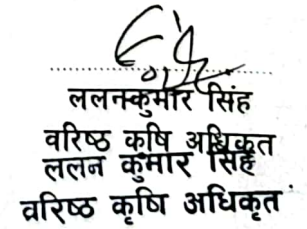 ललनकुमार सिंह
वरिष्ठ कृषि अधिकृत
ललन कुमार सिंह
वरिष्ठ कृषि अधिकृत